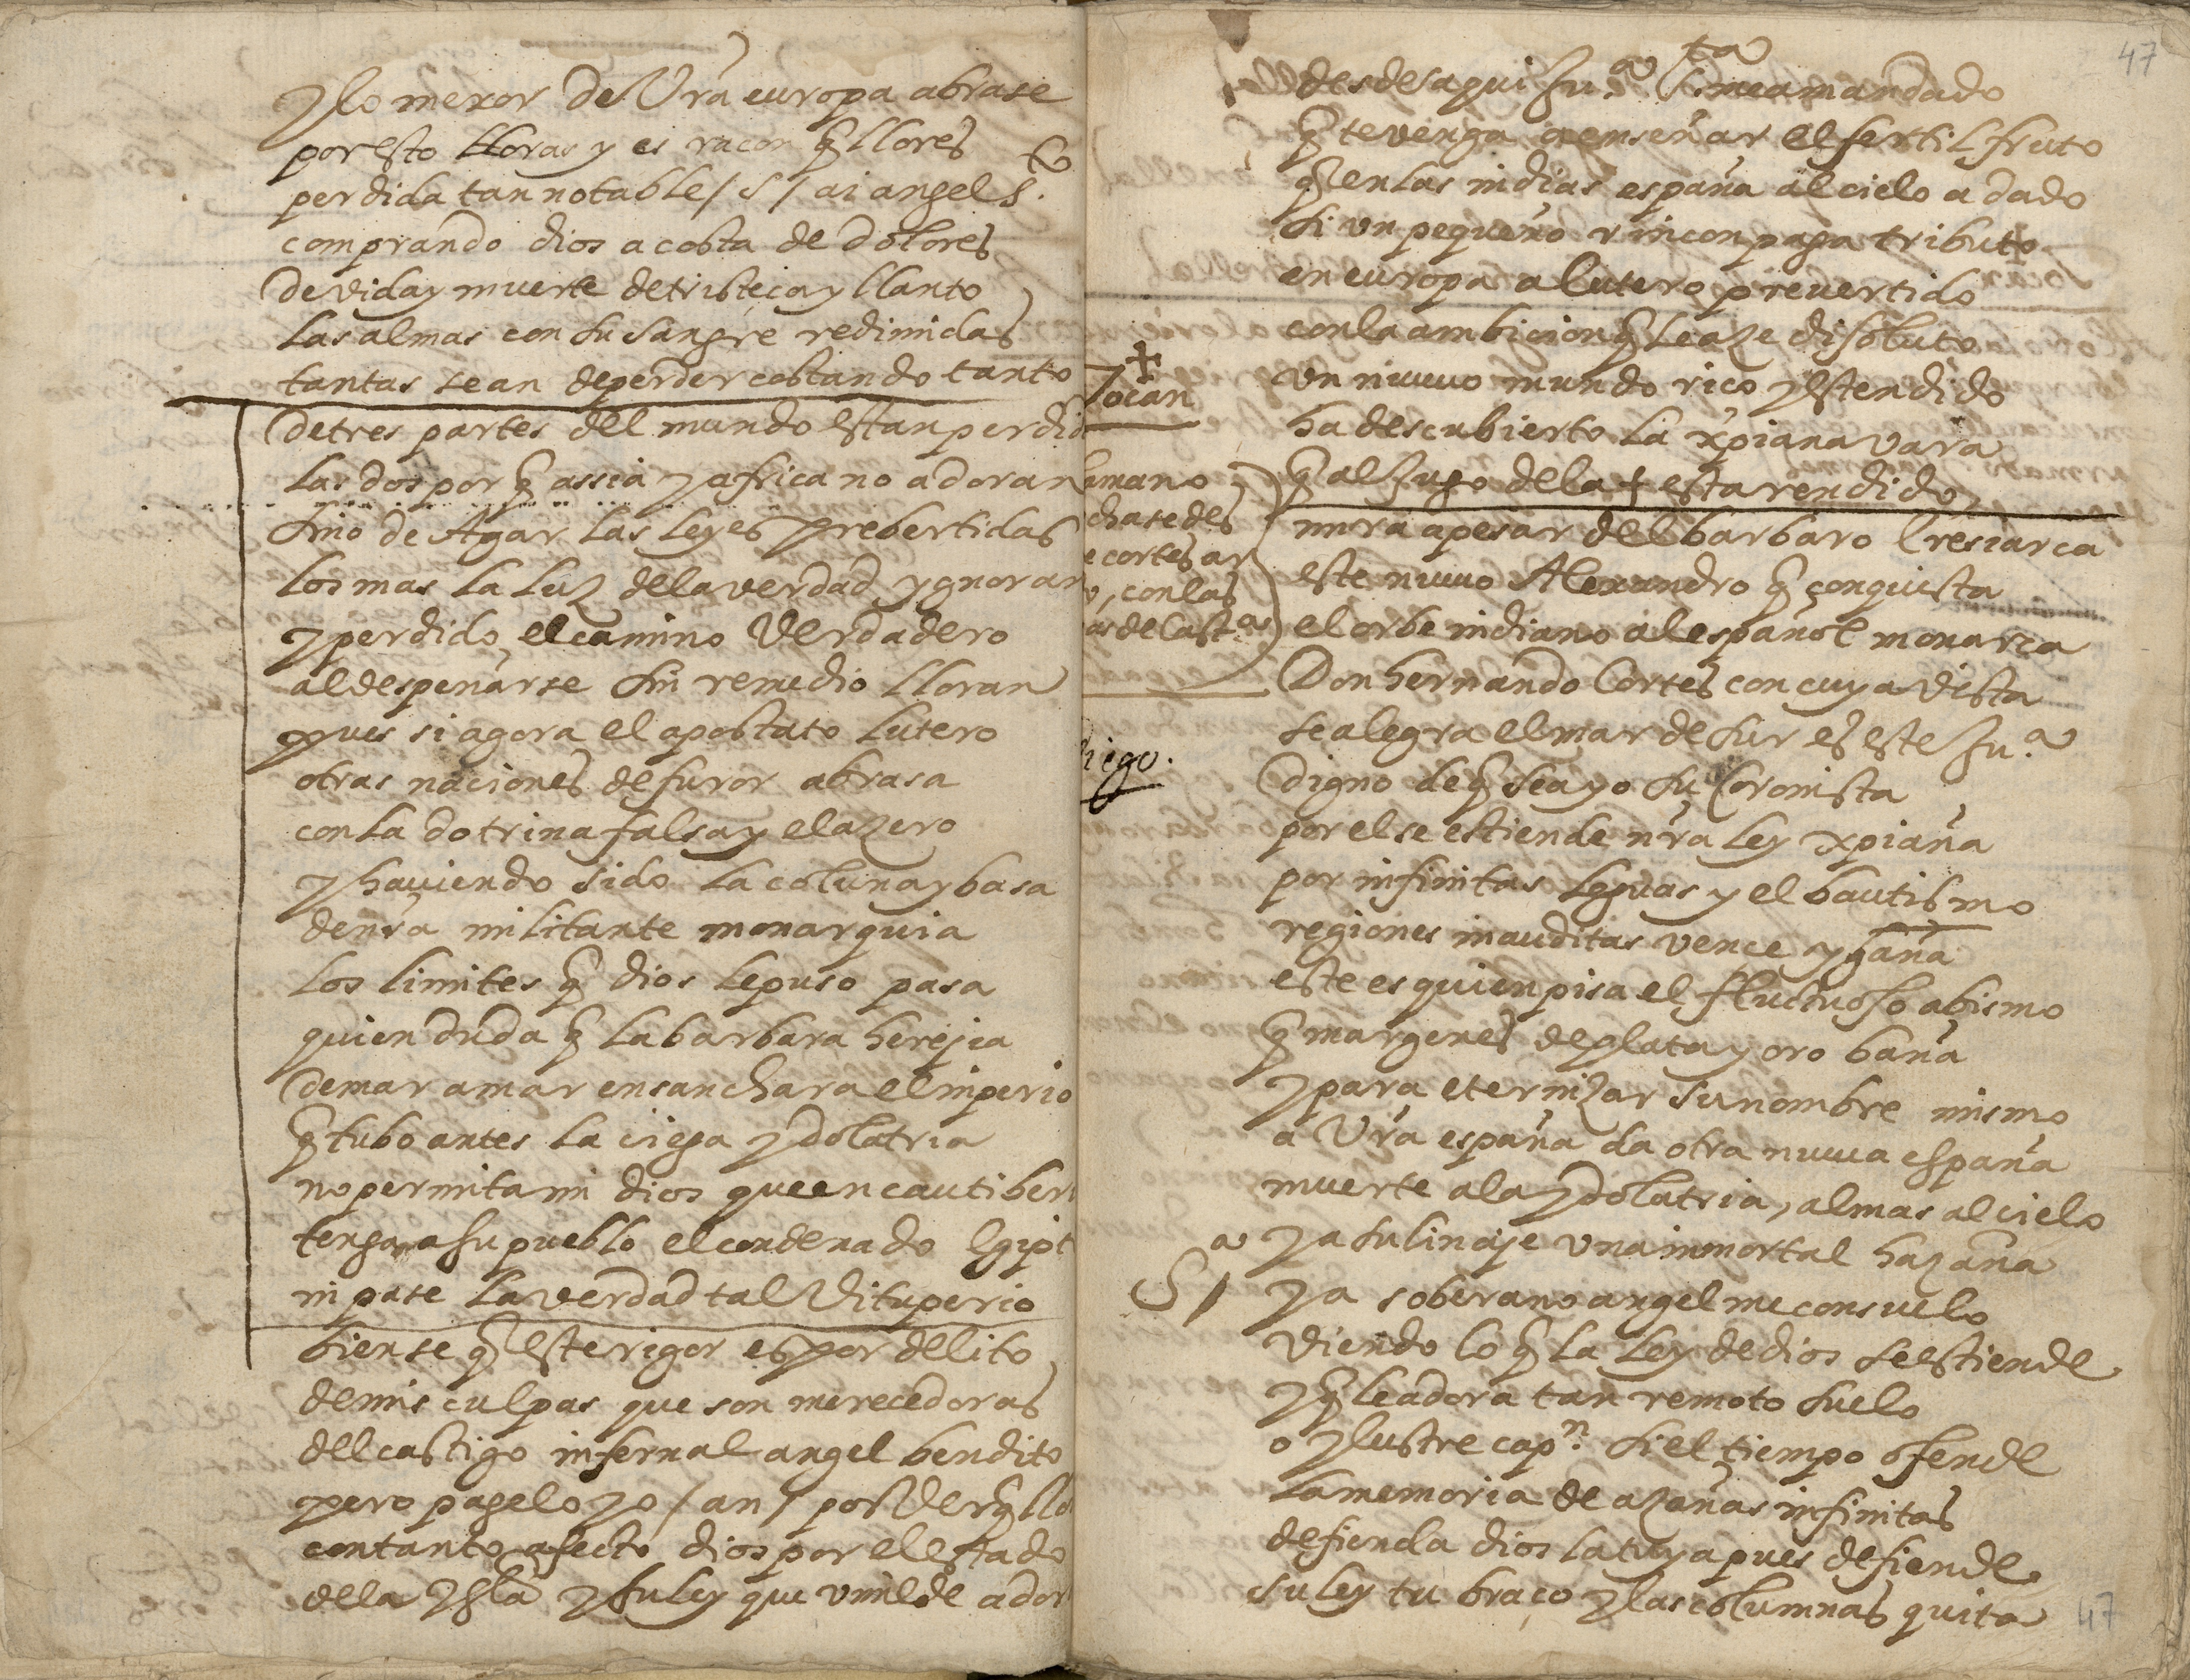 y lo mexor de Vra europa abrase
por esto lloras y es racon q̃ llores
perdida tan notable / S / ai angel S.to
comprando dios a costa de dolores
de vida y muerte de tristeça y llanto
las almas con su sangre redimidas
tantas se an de perder costando tanto
de tres partes del mundo estan perdid
las dos por q̃ assia y africa no adoran
sino de Agar las leyes prebertidas
los mas la luz de la verdad ygnoran
y perdido el camino Verdadero
al despeñarse sin remedio lloran
pues si agora el apostato lutero
otras naciones de furor abrasa
con la dotrina falsa y el azero
y haviendo sido la coluna y basa
de nrã militante monarquia
los limites q̃ dios le puso pasa
quien duda q̃ la barbara herejia
de mar a mar ensanchara el inperio
q̃ tubo antes la ciega ydolatria
no permita mi dios que en cautiber
tenga a su pueblo el condenado Egipt
ni pase la verdad tal Vituperio
bien se q̃ este rigor es por delito
de mis culpas que son merecedoras
del castigo infernal angel bendito
pero pagelo yo / an / por Ver q̃ llo
con tanto afecto dios por el estado
de la ygla y su ley que vmilde ador
47
desdes aqui su.a S.ta me a mandado
q̃ te venga a enseñar el fertil fruto
q̃ en las indias españa al cielo a dado
si vn pequeño rincon paga tributo
en europa a lutero prevertido
con la ambicion q̃ le aze disoluto
vn nuevo mundo rico y estendido
ha descubierto la xp̃iana vara
q̃ al jugo de la + esta rendido
mira a pesar del barbaro Eresiarca
este nuevo Alexandro q̃ conquista
el orbe indiano al español monarca
Don hernando Cortes con cuya vista
se alegra el mar de sur es este su.a
digno de q̃ sea yo su Coronista
por el se estiende nrã ley xp̃iana
por infinitas leguas y el bautismo
regiones inauditas vence y gana
este es quien pisa el fluctuoso abismo
q̃ margenes de plata y oro baña
y para eternizar su nombre mismo
a Vrã españa da otra nueva españa
muerte a la ydolatria, almas al cielo
y a su linaje vna inmortal hazaña
S.a / ya soberano angel me consuelo
viendo lo q̃ la ley de dios se estiende
y q̃ le adora tan remoto suelo
o ylustre cap.n si el tiempo ofende
la memoria de azañas infinitas
defienda dios la tuya pues defiende
su ley tu braço y las columnas quita
47
+
Tocan
mano
chase des
e cortes ar
, con las
as de Cast.as
hiego.